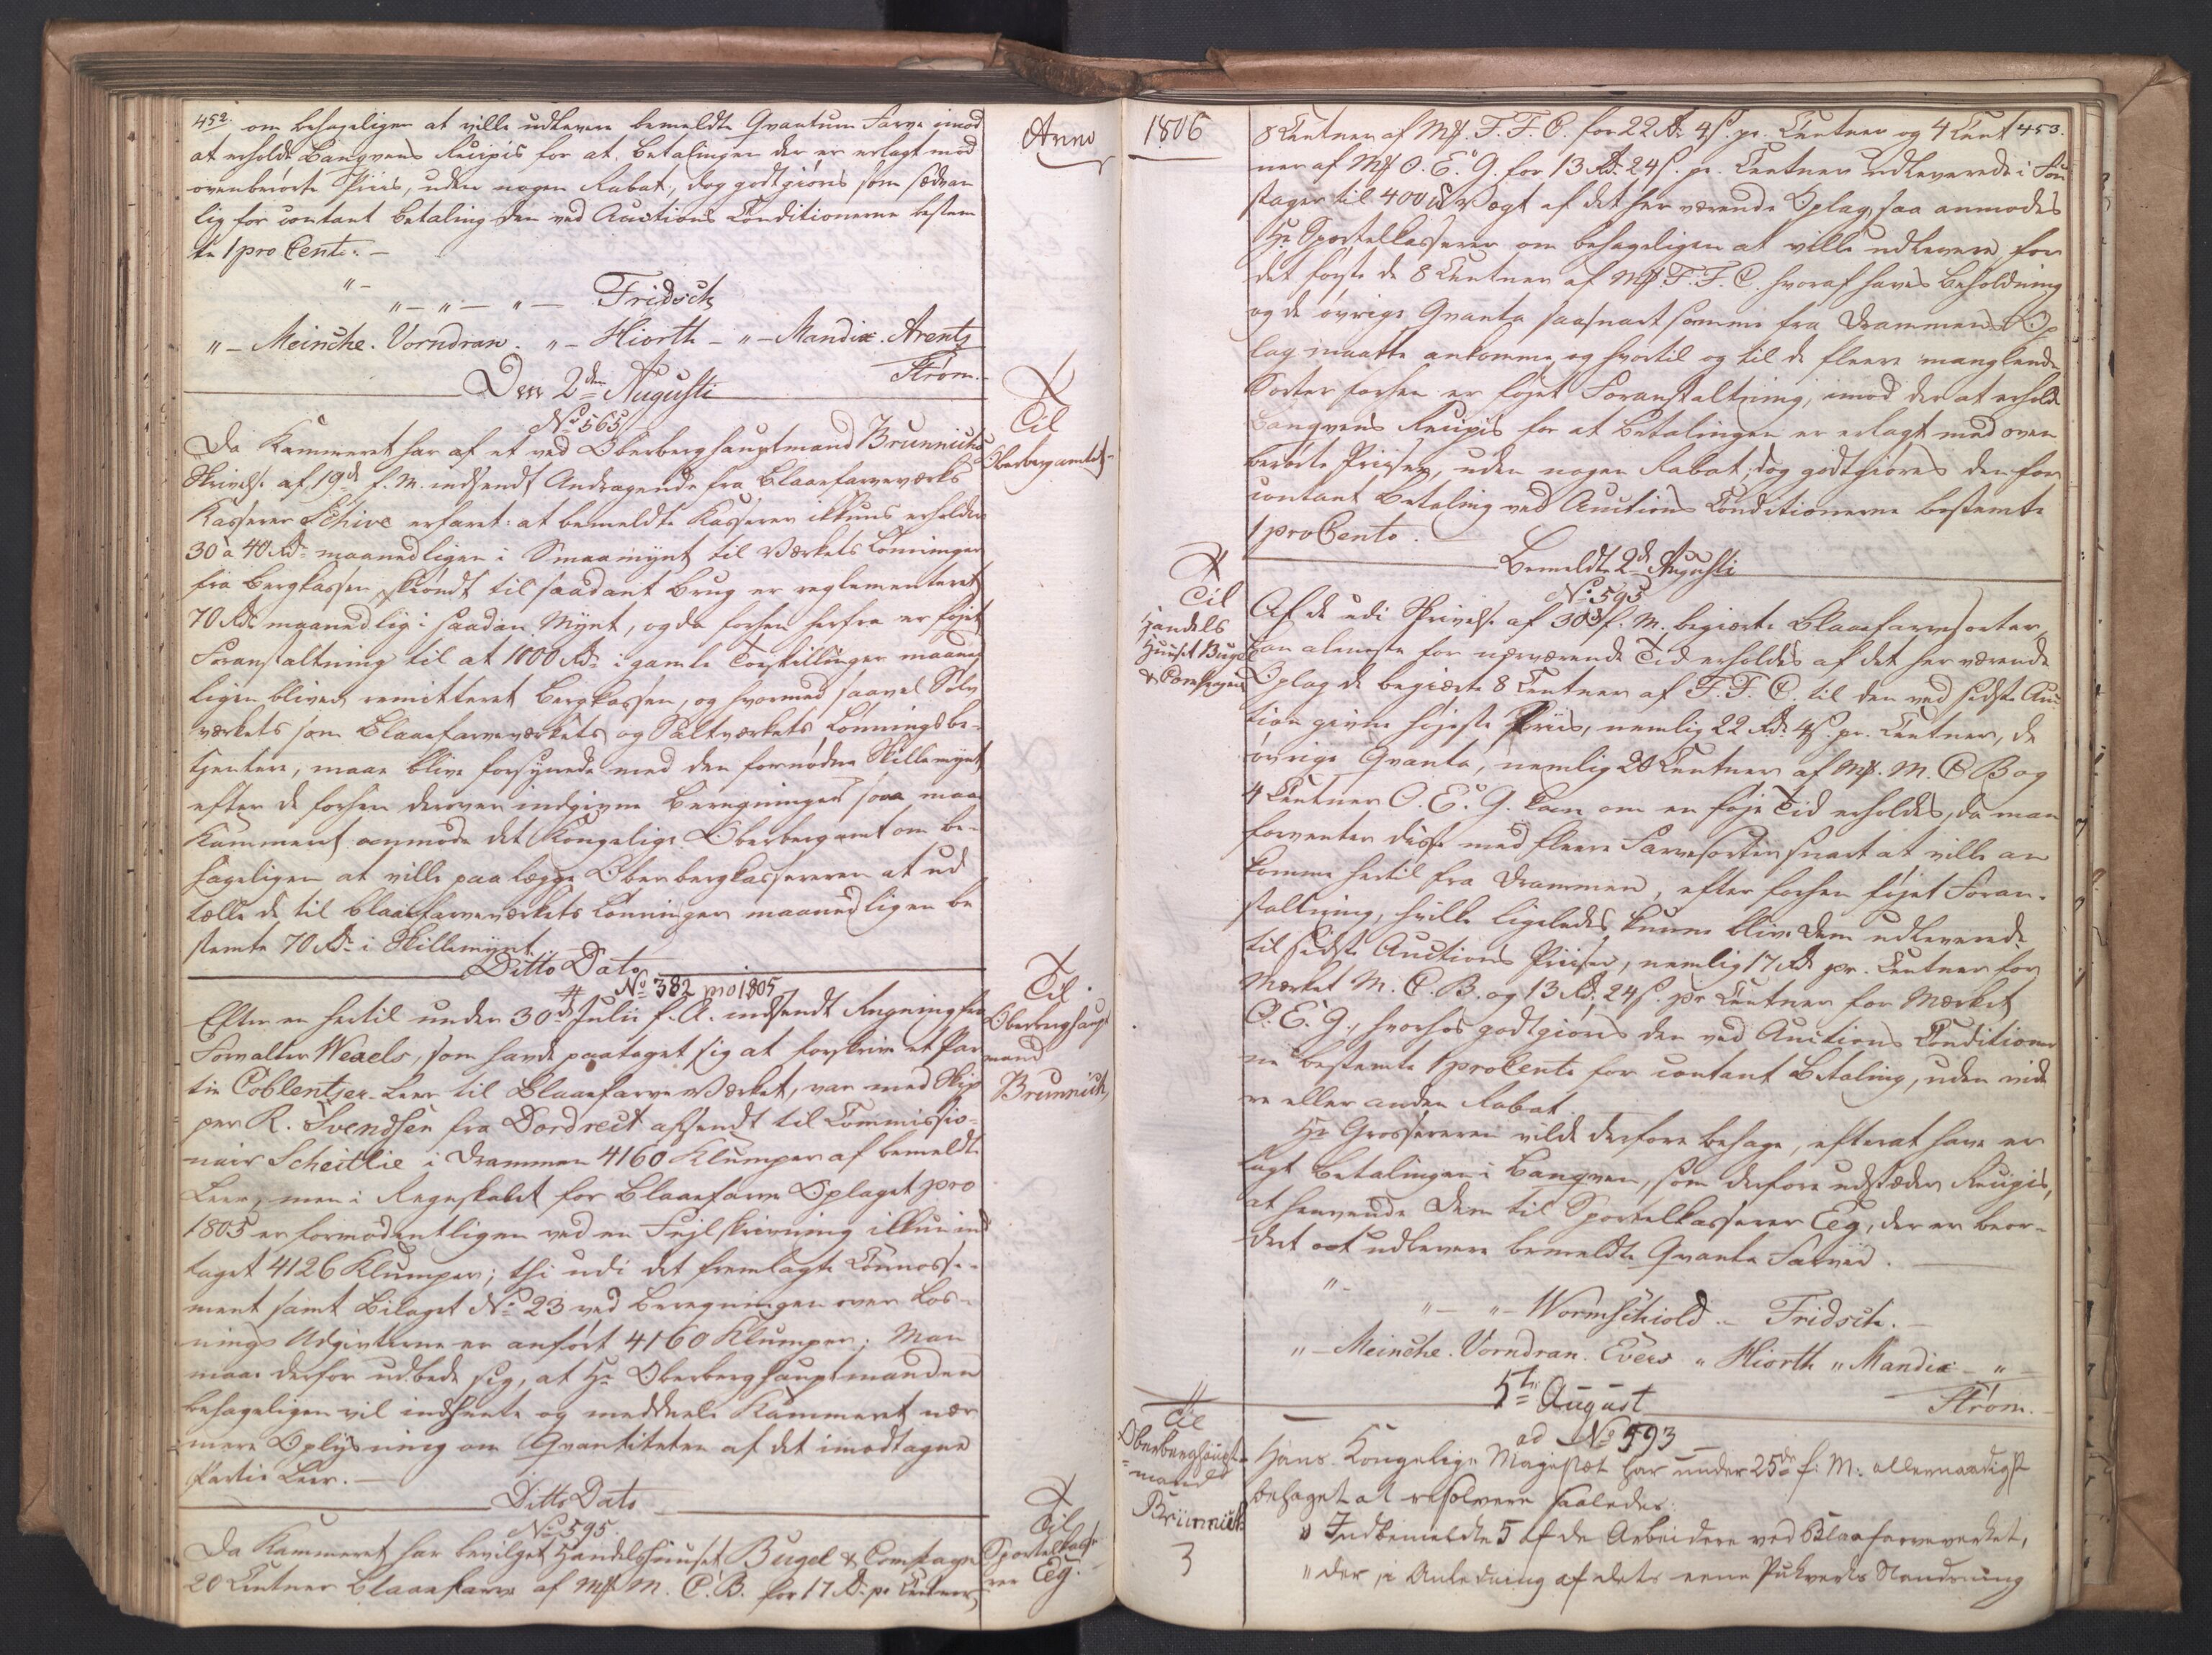 452. om behageligen at ville udlevere bemeldte Qvantum Farve imod
at erholde Banqvens Recipis for at Betalingen der er erlagt med
ovenberørte Priis, uden nogen Rabat, dog godtgiøres som sædvan
lig for contant Betaling den ved Auctions Conditionerne bestem
te 1 pro Cento. –
"–
"– "– "– Fridsch
"– Meinche. Vorndran. "– Hiorth – "– Mandix. Arentz
Strøm.
Den 2den Augusti
No 565
Da Kammeret har af et ved Oberberghauptmand Brunnichs
Skrivelse af 19de f. M. indsendt Andragende fra Blaaefarveværks
Kasserer Schive erfaret: at bemeldte Kasserer ikkuns erholder
30 a 40 Rd. maanedligen i Smaamynt til Værkets Lønninger
fra Bergkassen, skiøndt til saadant Brug er reglementeret
70 Rd. maanedlig i saadan Mynt, og da forhen herfra er føjet
Foranstaltning til at 1000 Rd. i gamle Toeskillinger maaned
ligen bliver remitteret Bergkassen, og hvormed saavel Sølv
værkets som Blaaefarveværkets og Saltværkets Lønningsbe-
tjentere, maae blive forsynede med den fornødne Skillemynt
efter de forhen derover indgivne Beregninger, saa maa
Kammeret anmode det Kongelige Oberbergamt om be-
hageligen at ville paalægge Oberbergkassereren at ud
tælle de til Blaaefarveværkets Lønninger maanedligen be
stemte 70 Rd. i Skillemynt.
Til
Oberbergamtet.
Ditto Dato
No 382 pro 1805
Efter en hertil under 30te Julii f. A. indsendt Regning fra
Forvalter Weaels, som havde paataget sig at forskrive et Par
tie Coblentzer-Leer til Blaaefarve Værket, var med Skip
per R. Svendsen fra Dordrect afsendt til Commissio-
nair Scheitlie i Drammen 4160 Klumper af bemeldte
Leer, men i Regnskabet for Blaaefarve Oplaget pro
1805 er formodentligen ved en Fejlskrivning ikkun ind
taget 4126 Klumper; thi udi det fremlagte Connosse-
ment samt Bilaget No 23 ved Beregningen over Los-
nings Udgivterne er anført 4160 Klumper; Man
maae derfor udbede sig, at Hr. Oberberghauptmanden
behageligen vil indhente og meddele Kammeret nær
mere Oplysning om Qvantiteten af det imodtagne
Partie Leer. –
Til
Oberberghaupt
mand
Brunnich
Ditto Dato
No 595.
Da Kammeret har bevilget Handelshuuset Bugel & Compagn
20 Centner Blaaefarve af Mk M. C. B. for 17 Rd. pr. Centner,
Til
Sportelkasse
rer Eeg.
Anno
1806
453.
8 Centner af Mk. F. F. C. for 22 Rd. 4 s. pr. Centner og 4 Cent
ner af Mk O. E. G. for 13 Rd. 24 s. pr. Centner udleverede i Fu
stager til 400 lb Vægt af det her værende Oplag, saa anmodes
Hr. Sportelkasserer om behageligen at ville udlevere for
det første de 8 Centner af Mk F. F. C. hvoraf haves Beholdning
og de øvrige Qvanta saasnart samme fra Drammens Op
lag maatte ankomme, og hvortil og til de fleere manglende
Sorter forhen er føjet Foranstaltning, imod der at erholde
Banqvens Recipis for at Betalingen er erlagt med oven
berørte Priser, uden nogen Rabat; dog godtgiøres den for
contant Betaling ved Auctions Conditionerne bestemte
1 pro Cento.
Bemeldte 2de Augusti
No 595
Til
Handels
Huuset Bugel
& Compagnie
Af de udi Skrivelse af 30te f. M. begiærte Blaaefarvesorter
kan alene for nærværende Tid erholdes af det her værende
Oplag de begiærte 8 Centner af F. F. C. til den ved sidste Auc
tion givne højeste Priis, nemlig 22 Rd. 4 s. pr. Centner, de
øvrige Qvanta, nemlig 20 Centner af Mk. M. C. B og
4 Centner O. E. G. kan om en føje Tid erholdes, da man
forventer disse med fleere Farvesorter snart at ville an
komme hertil fra Drammen, efter forhen føjet Foran-
staltning, hvilke ligeledes kunne blive Dem udleverede
til sidste Auctions Priiser, nemlig 17 Rd. pr. Centner for
Mærket M. C. B. og 13 Rd. 24 s. pr. Centner for Mærket
O. E. G., hvorhos godtgiøres den ved Auctions Conditioner
ne bestemte 1 pro Cento for contant Betaling, uden vide
re eller anden Rabat.
Hr. Grossereren vilde derfore behage, efterat have er
lagt Betalingen i Banqven, som derfore udstæder Recipis,
at henvende Dem til Sportelkasserer Eeg, der er beor-
dret at udlevere bemeldte Qvanta Farver.
"–
"– "– Wormskiold. – Fridsch. –
"– Meinche. Vorndran. Evers " Hiorth " Mandix – "–
Strøm.
5te August
ad No 593
Til
Oberberghaupt-
mand
Brünnich
3
Hans Kongelige Majestæt har under 25de f: M: allernaadigst
behaget at resolvere saaledes:
" Indbemeldte 5 af de Arbeidere ved Blaafarveverket,
" der i Anledning af dets eene Pukverks Standsning